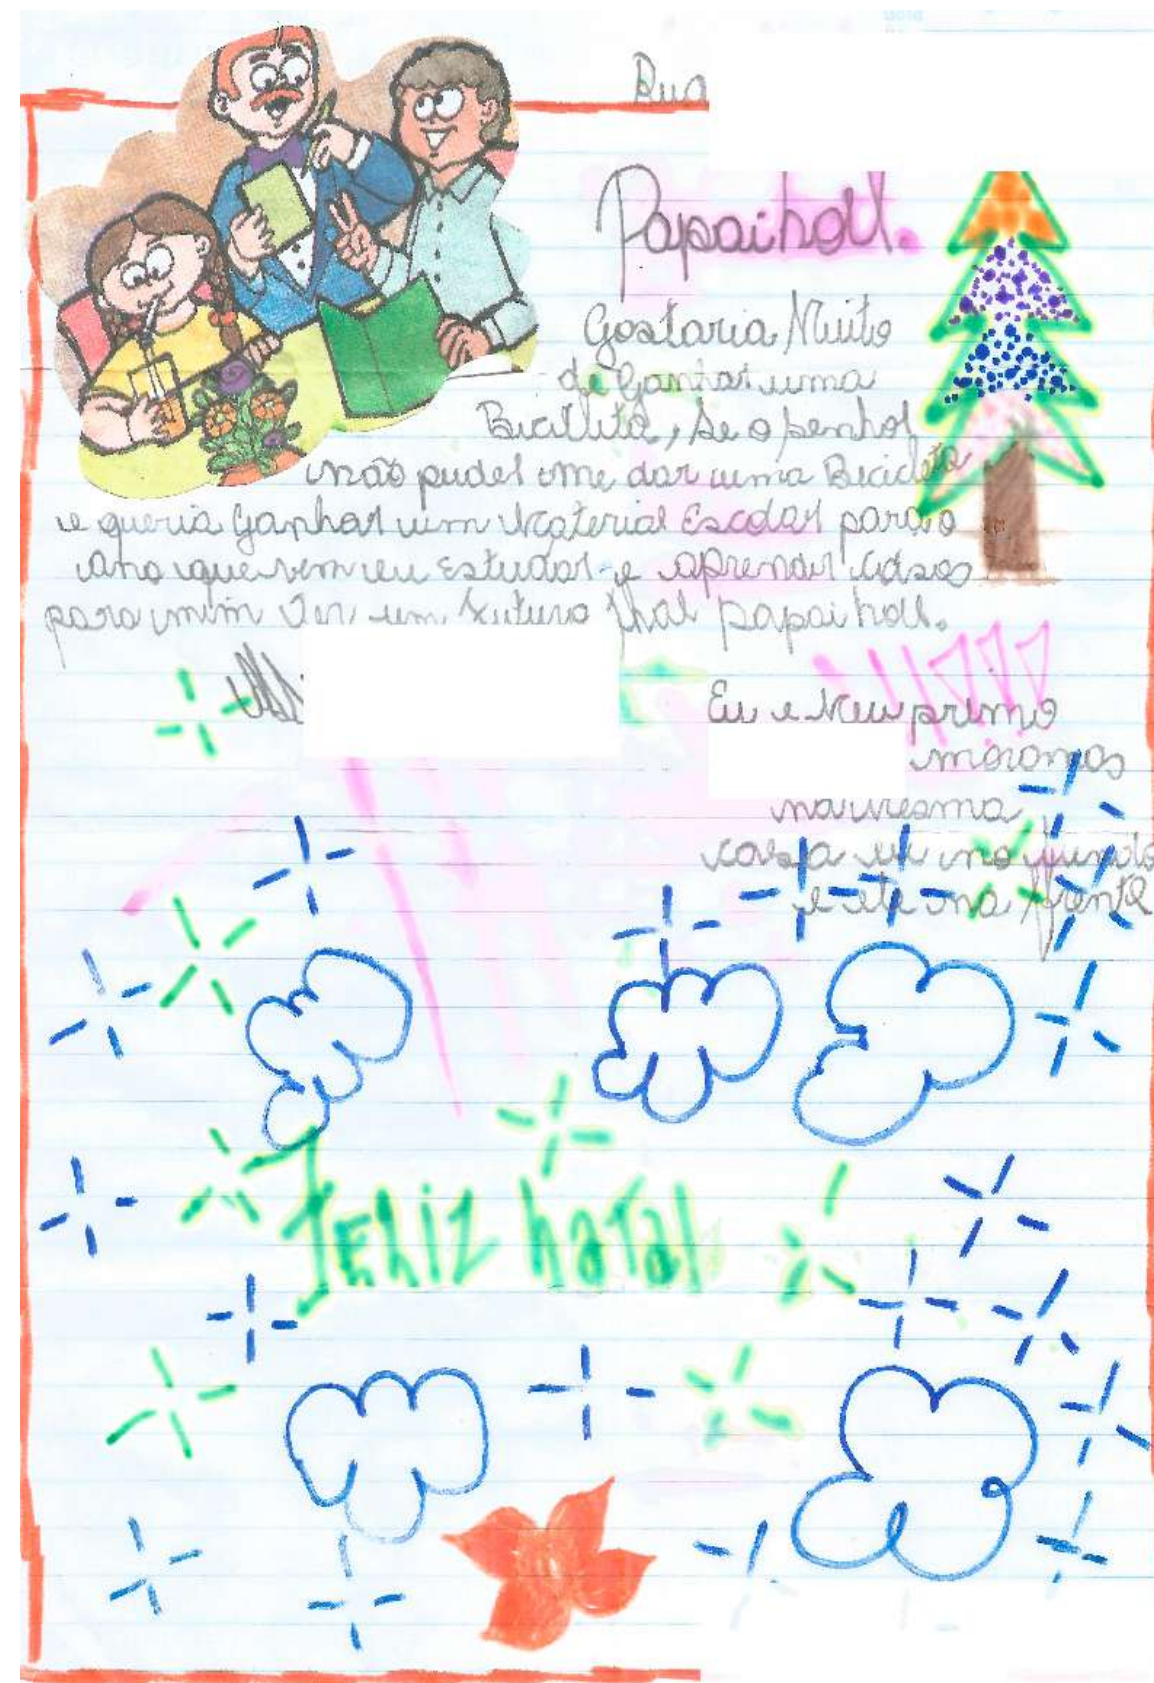 Rua
Papai noel.
Gostaria Muito
de Ganhar uma
Bicicleta, se o senhor
não puder me dar uma Bicicleta
e queria Ganhar um Material Escolar para o
ano que vem eu Estudar e aprender coisas
para mim ter um futuro papai noel.
Ass:
Eu e Meu primo
moramos
na mesma
casa eu no fundo
e ele na frente
Feliz natal